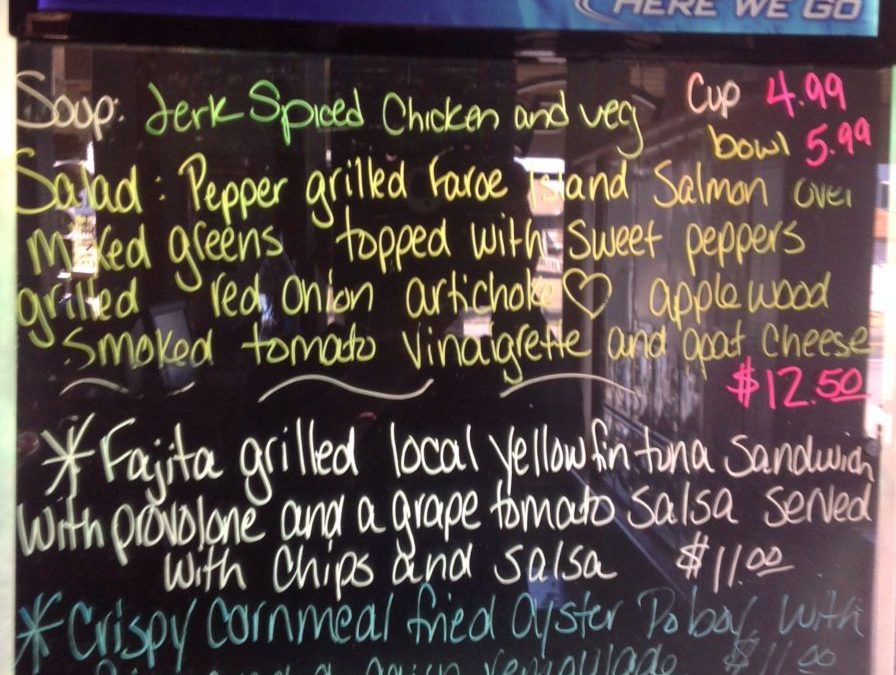 HERE WE GO
Soup: Jerk Spiced Chicken and veg Cup 4.99
bowl 5.99
Salad: Pepper grilled Faroe Island Salmon over
mixed greens topped with sweet peppers
grilled red onion artichoke♡ applewood
smoked tomato vinaigrette and goat cheese
$12.50
*Fajita grilled local yellowfin tuna sandwich
with provolone and a grape tomato salsa served
with chips and salsa $11.00
*Crispy cornmeal fried Oyster Po boy with
remoulade $11.00